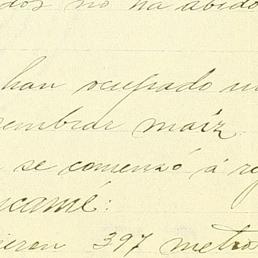 dos no ha abido
han ocupado
sembrar maíz
se comensó á
397 metro